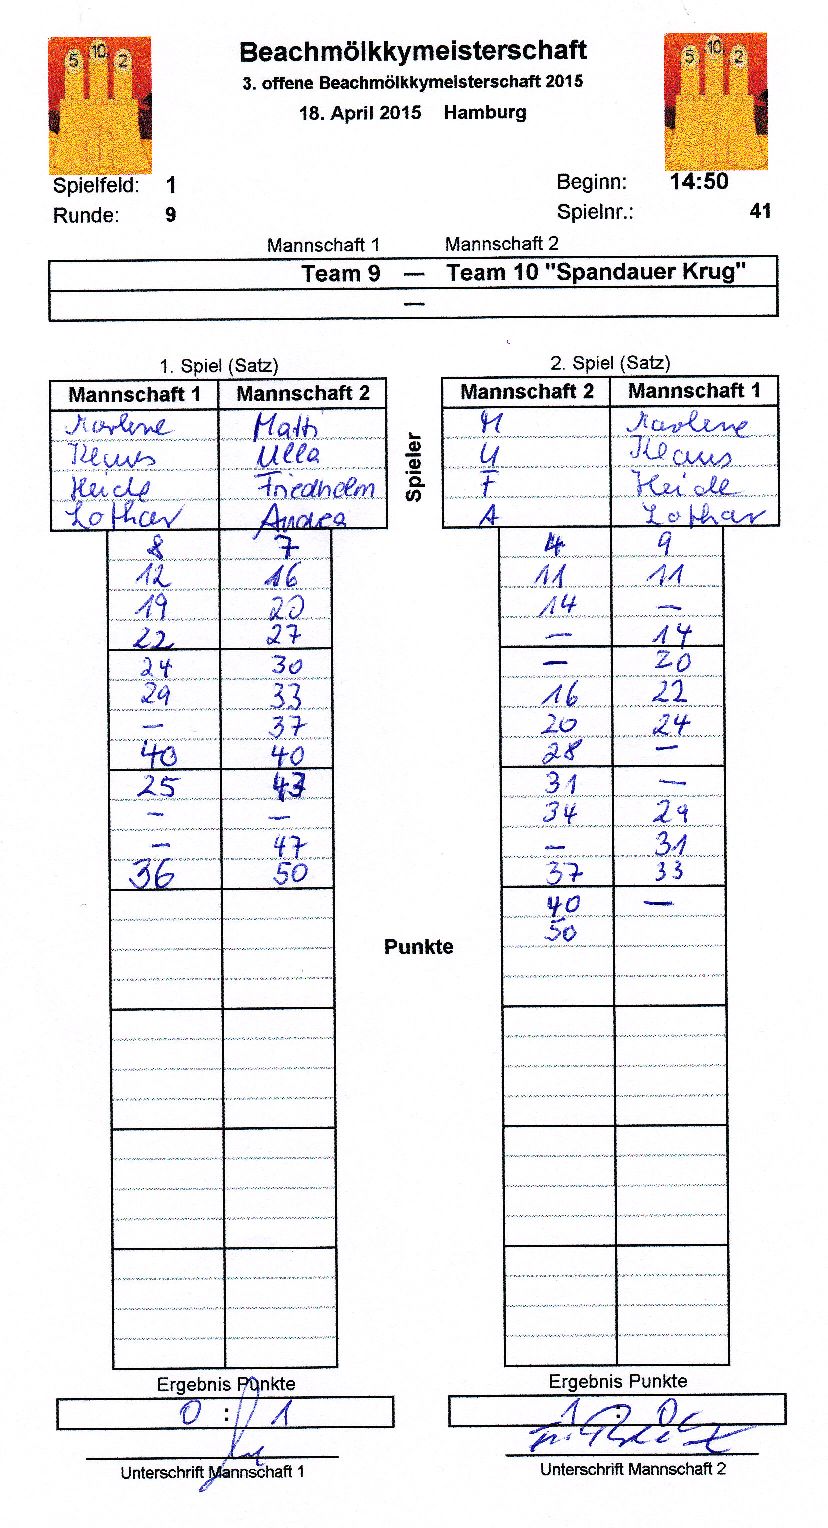 5 10 2
Beachmölkkymeisterschaft
5 10 2
3. offene Beachmölkkymeisterschaft 2015
18. April 2015 Hamburg
Spielfeld: 1 Beginn: 14:50
Runde: 9 Spielnr.: 41
Mannschaft 1 Mannschaft 2
Team 9 — Team 10 "Spandauer Krug"
—
1. Spiel (Satz) 2. Spiel (Satz)
Mannschaft 1 Mannschaft 2 Mannschaft 2 Mannschaft 1
Marlene Matti M Marlene
Klaus Ulla U Klaus
Heide Friedhelm F Heide
Lothar Andrea A Lothar
Spieler
8 7 4 9
12 16 11 11
19 20 14 —
22 27 — 14
24 30 — 20
29 33 16 22
— 37 20 24
40 40 28 —
25 43 31 —
— — 34 29
— 47 — 31
36 50 37 33
40 —
50
Punkte
Ergebnis Punkte Ergebnis Punkte
0 : 1 1 : 0
Unterschrift Mannschaft 1 Unterschrift Mannschaft 2